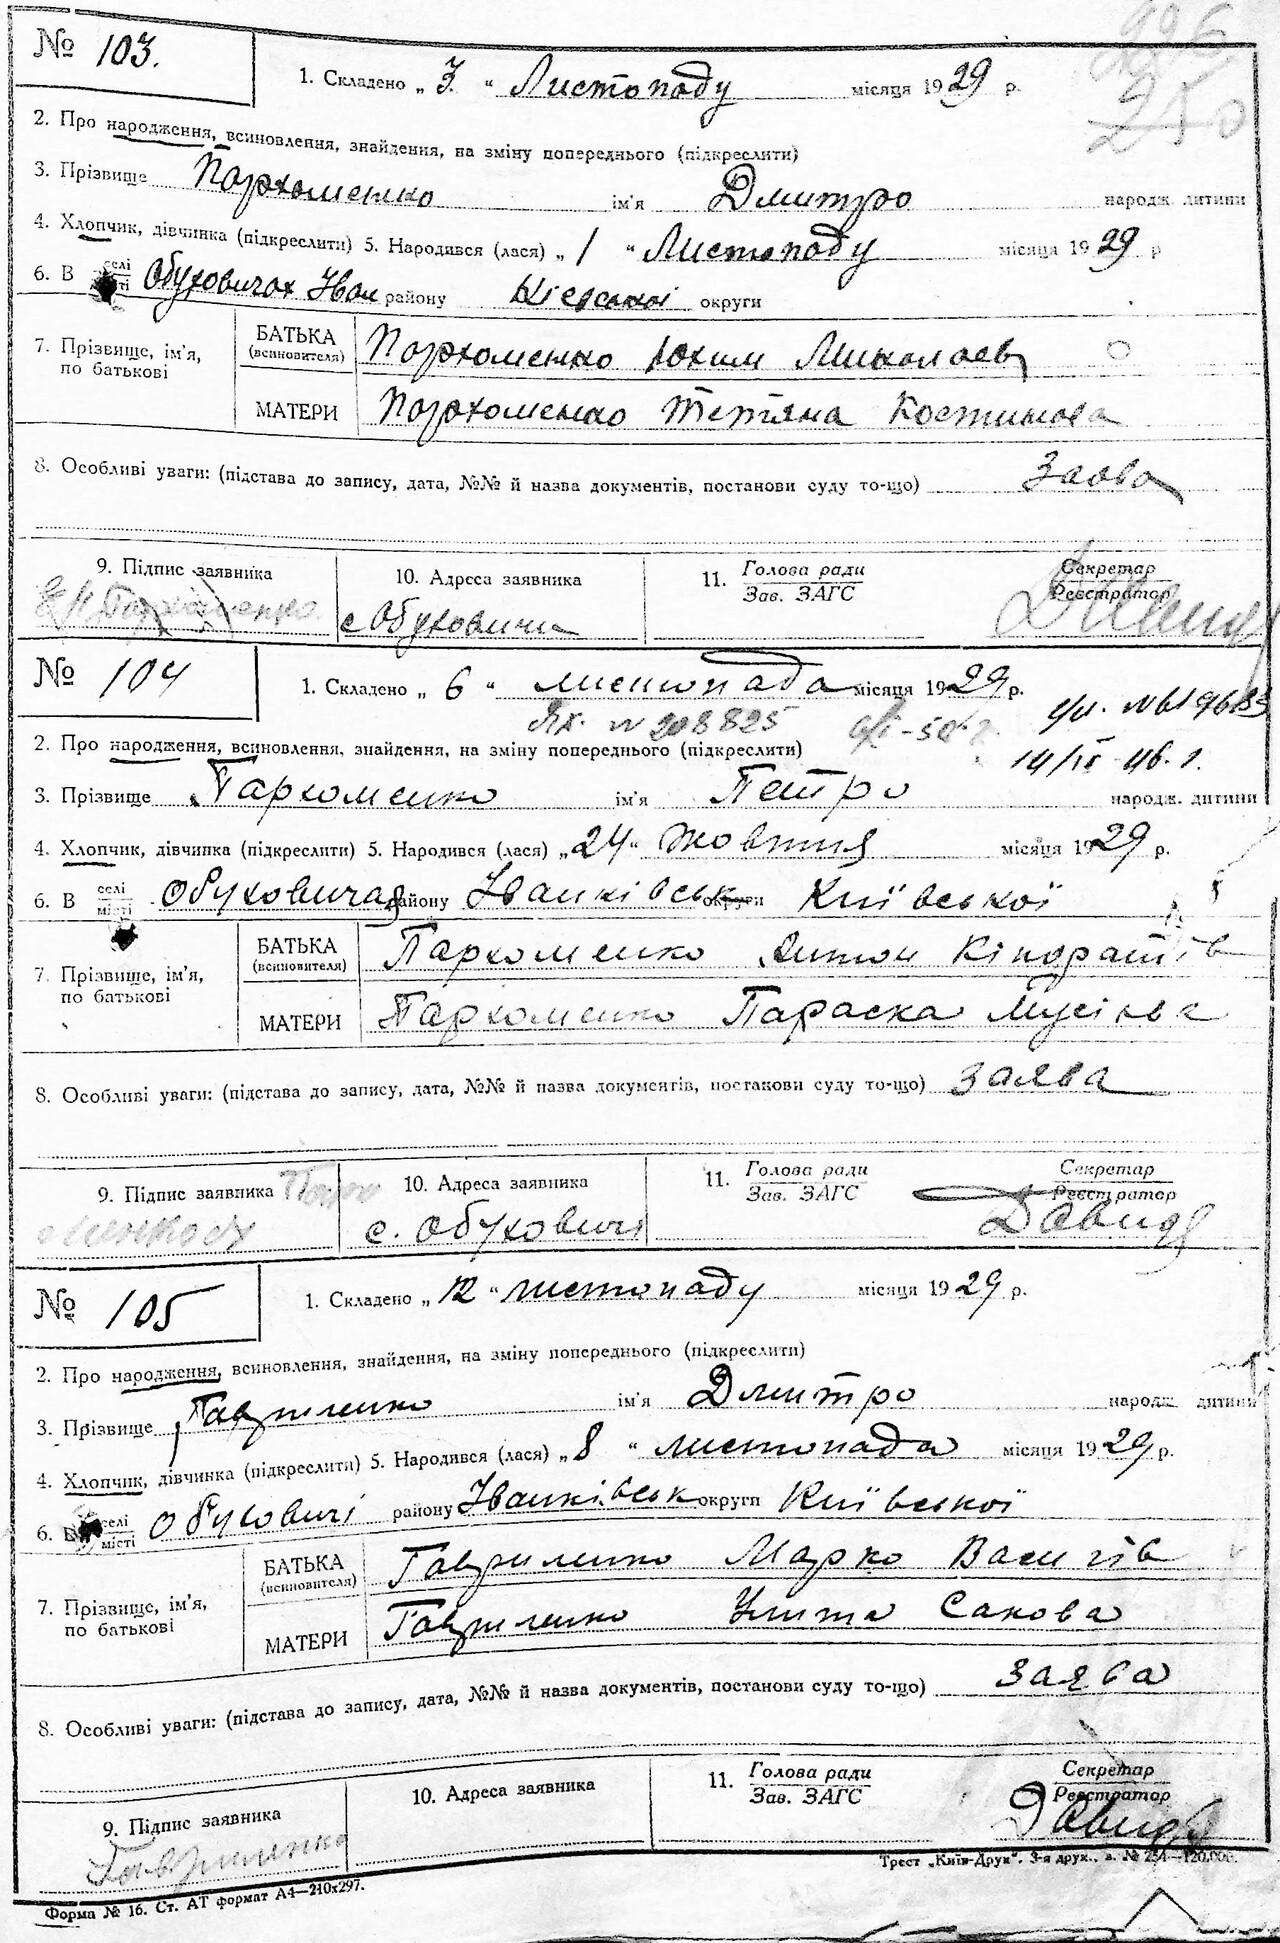 № 103.
1. Складено „ 3. “ Листопаду місяця 1929 р.
2. Про народження, всиновлення, знайдення, на зміну попереднього (підкреслити)
3. Прізвище Пархоменко ім'я Дмитро народж. дитини
4. Хлопчик, дівчинка (підкреслити) 5. Народився (лася) „ 1 “ Листопаду місяця 1929 р
6. В селі Обуховичах Іван району Київської округи
7. Прізвище, ім'я, по батькові
БАТЬКА (всиновителя) Пархоменко Юхим Миколаев
МАТЕРИ Пархоменко Тетяна Костинова
8. Особливі уваги: (підстава до запису, дата, №№ й назва документів, постанови суду то-що) Заява
9. Підпис заявника Пархоменко.
10. Адреса заявника с Обуховичи
11. Голова ради Зав. ЗАГС
Секретар Реєстратор
№ 104
1. Складено „ 6 “ листопада місяця 1929 р.
№ 208825
14/II 46. г.
2. Про народження, всиновлення, знайдення, на зміну попереднього (підкреслити)
3. Прізвище Пархоменко ім'я Петро народж. дитини
4. Хлопчик, дівчинка (підкреслити) 5. Народився (лася) „ 24 “ жовтня місяця 1929 р.
6. В селі місті Обуховичах району Іванківськ округи Київської
7. Прізвище, ім'я, по батькові
БАТЬКА (всиновителя) Пархоменко Антон Кіндратів
МАТЕРИ Пархоменко Параска Мусіївна
8. Особливі уваги: (підстава до запису, дата, №№ й назва документів, постанови суду то-що) заява
9. Підпис заявника
10. Адреса заявника с. Обуховичі
11. Голова ради Зав. ЗАГС
Секретар Реєстратор
№ 105
1. Складено „ 12 “ листопаду місяця 1929 р.
2. Про народження, всиновлення, знайдення, на зміну попереднього (підкреслити)
3. Прізвище Гавриленко ім'я Дмитро народж. дитини
4. Хлопчик, дівчинка (підкреслити) 5. Народився (лася) „ 8 “ листопада місяця 1929 р.
6. В селі місті Обуховичі району Іванківськ округи Київської
7. Прізвище, ім'я, по батькові
БАТЬКА (всиновителя) Гавриленко Марко Васи
МАТЕРИ Гавриленко Улита Сакова
8. Особливі уваги: (підстава до запису, дата, №№ й назва документів, постанови суду то-що) заява
9. Підпис заявника Гавриленко
10. Адреса заявника
11. Голова ради Зав. ЗАГС
Секретар Реєстратор
Форма № 16. Ст. АТ формат А4—210x297.
Трест „Київ-Друк“. 3-я друк., з. № 254—120,000.